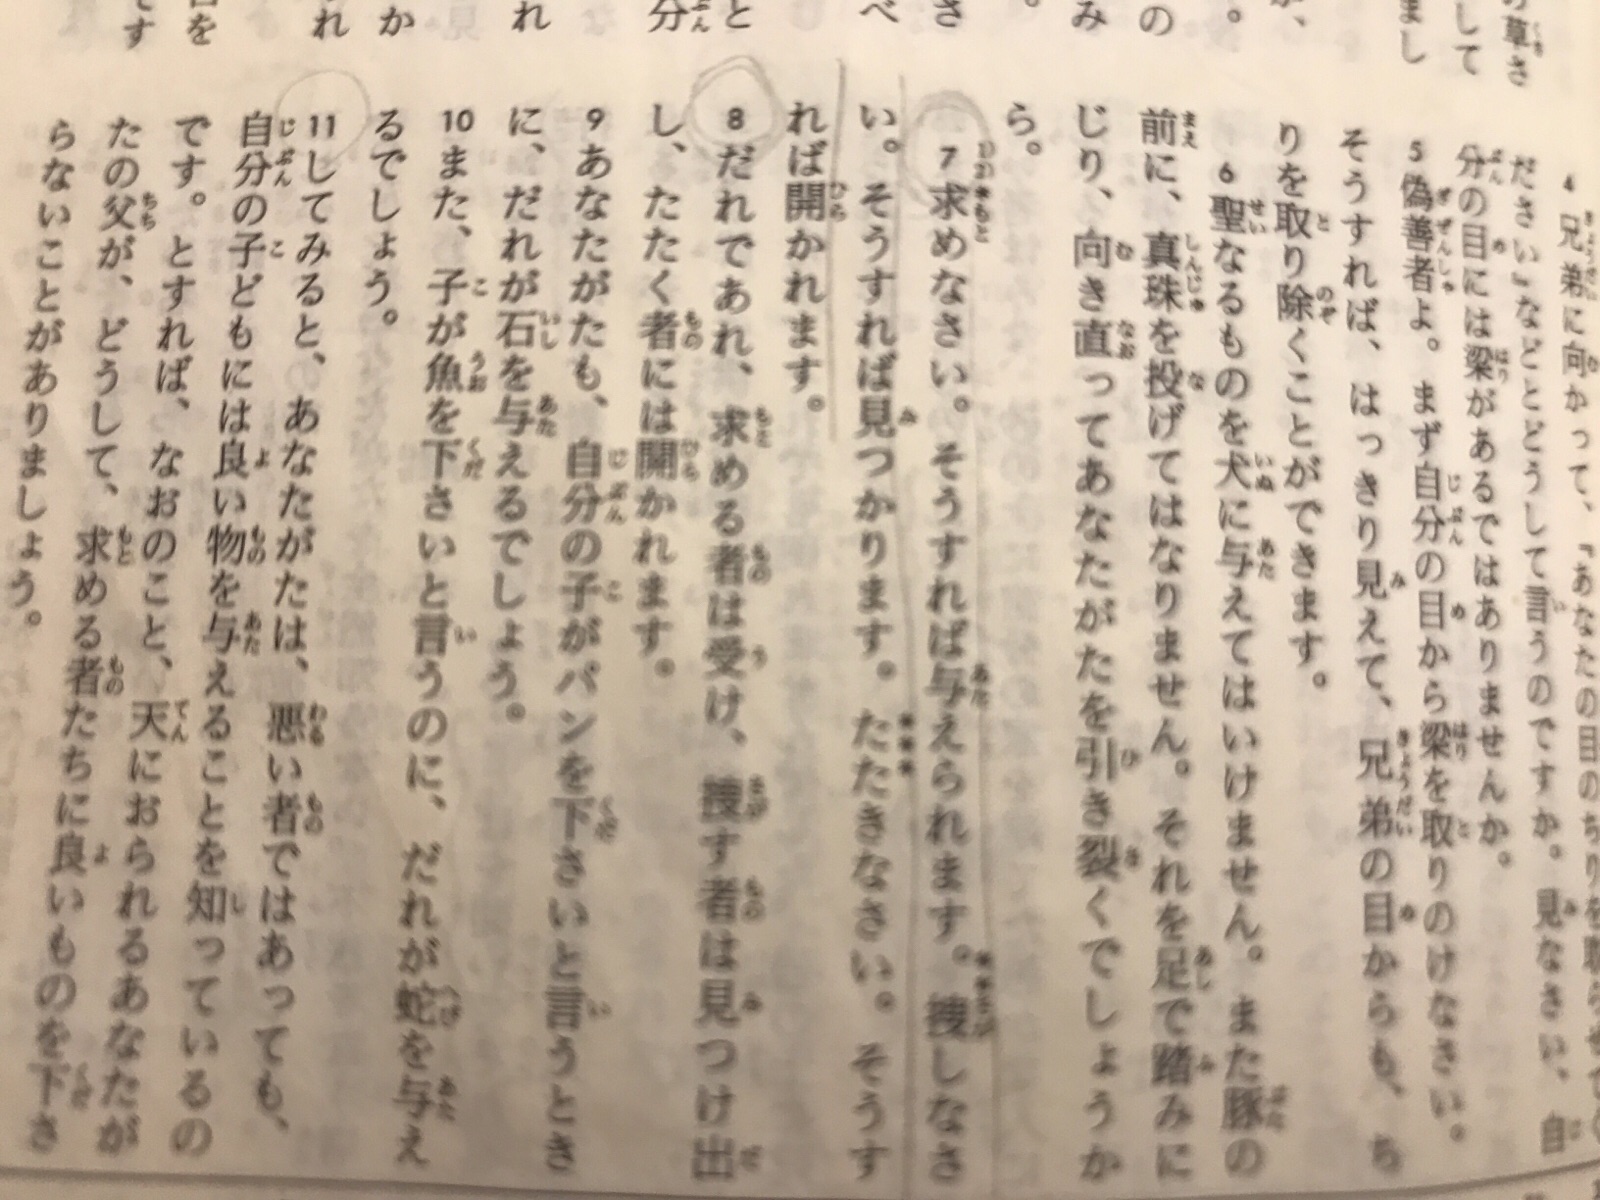 の草さ
して
まし
4 兄弟に向かって、『あなたの目のちりを取らせてく
ださい』などとどうして言うのですか。見なさい、自
分の目には梁があるではありませんか。
5 偽善者よ。まず自分の目から梁を取りのけなさい。
そうすれば、はっきり見えて、兄弟の目からも、ち
りを取り除くことができます。
6 聖なるものを犬に与えてはいけません。また豚の
前に、真珠を投げてはなりません。それを足で踏みに
じり、向き直ってあなたがたを引き裂くでしょうか
ら。
7 求めなさい。そうすれば与えられます。捜しなさ
い。そうすれば見つかります。たたきなさい。そうす
れば開かれます。
8 だれであれ、求める者は受け、捜す者は見つけ出
し、たたく者には開かれます。
9 あなたがたも、自分の子がパンを下さいと言うとき
に、だれが石を与えるでしょう。
10 また、子が魚を下さいと言うのに、だれが蛇を与え
るでしょう。
11 してみると、あなたがたは、悪い者ではあっても、
自分の子どもには良い物を与えることを知っているの
です。とすれば、なおのこと、天におられるあなたが
たの父が、どうして、求める者たちに良いものを下さ
らないことがありましょう。